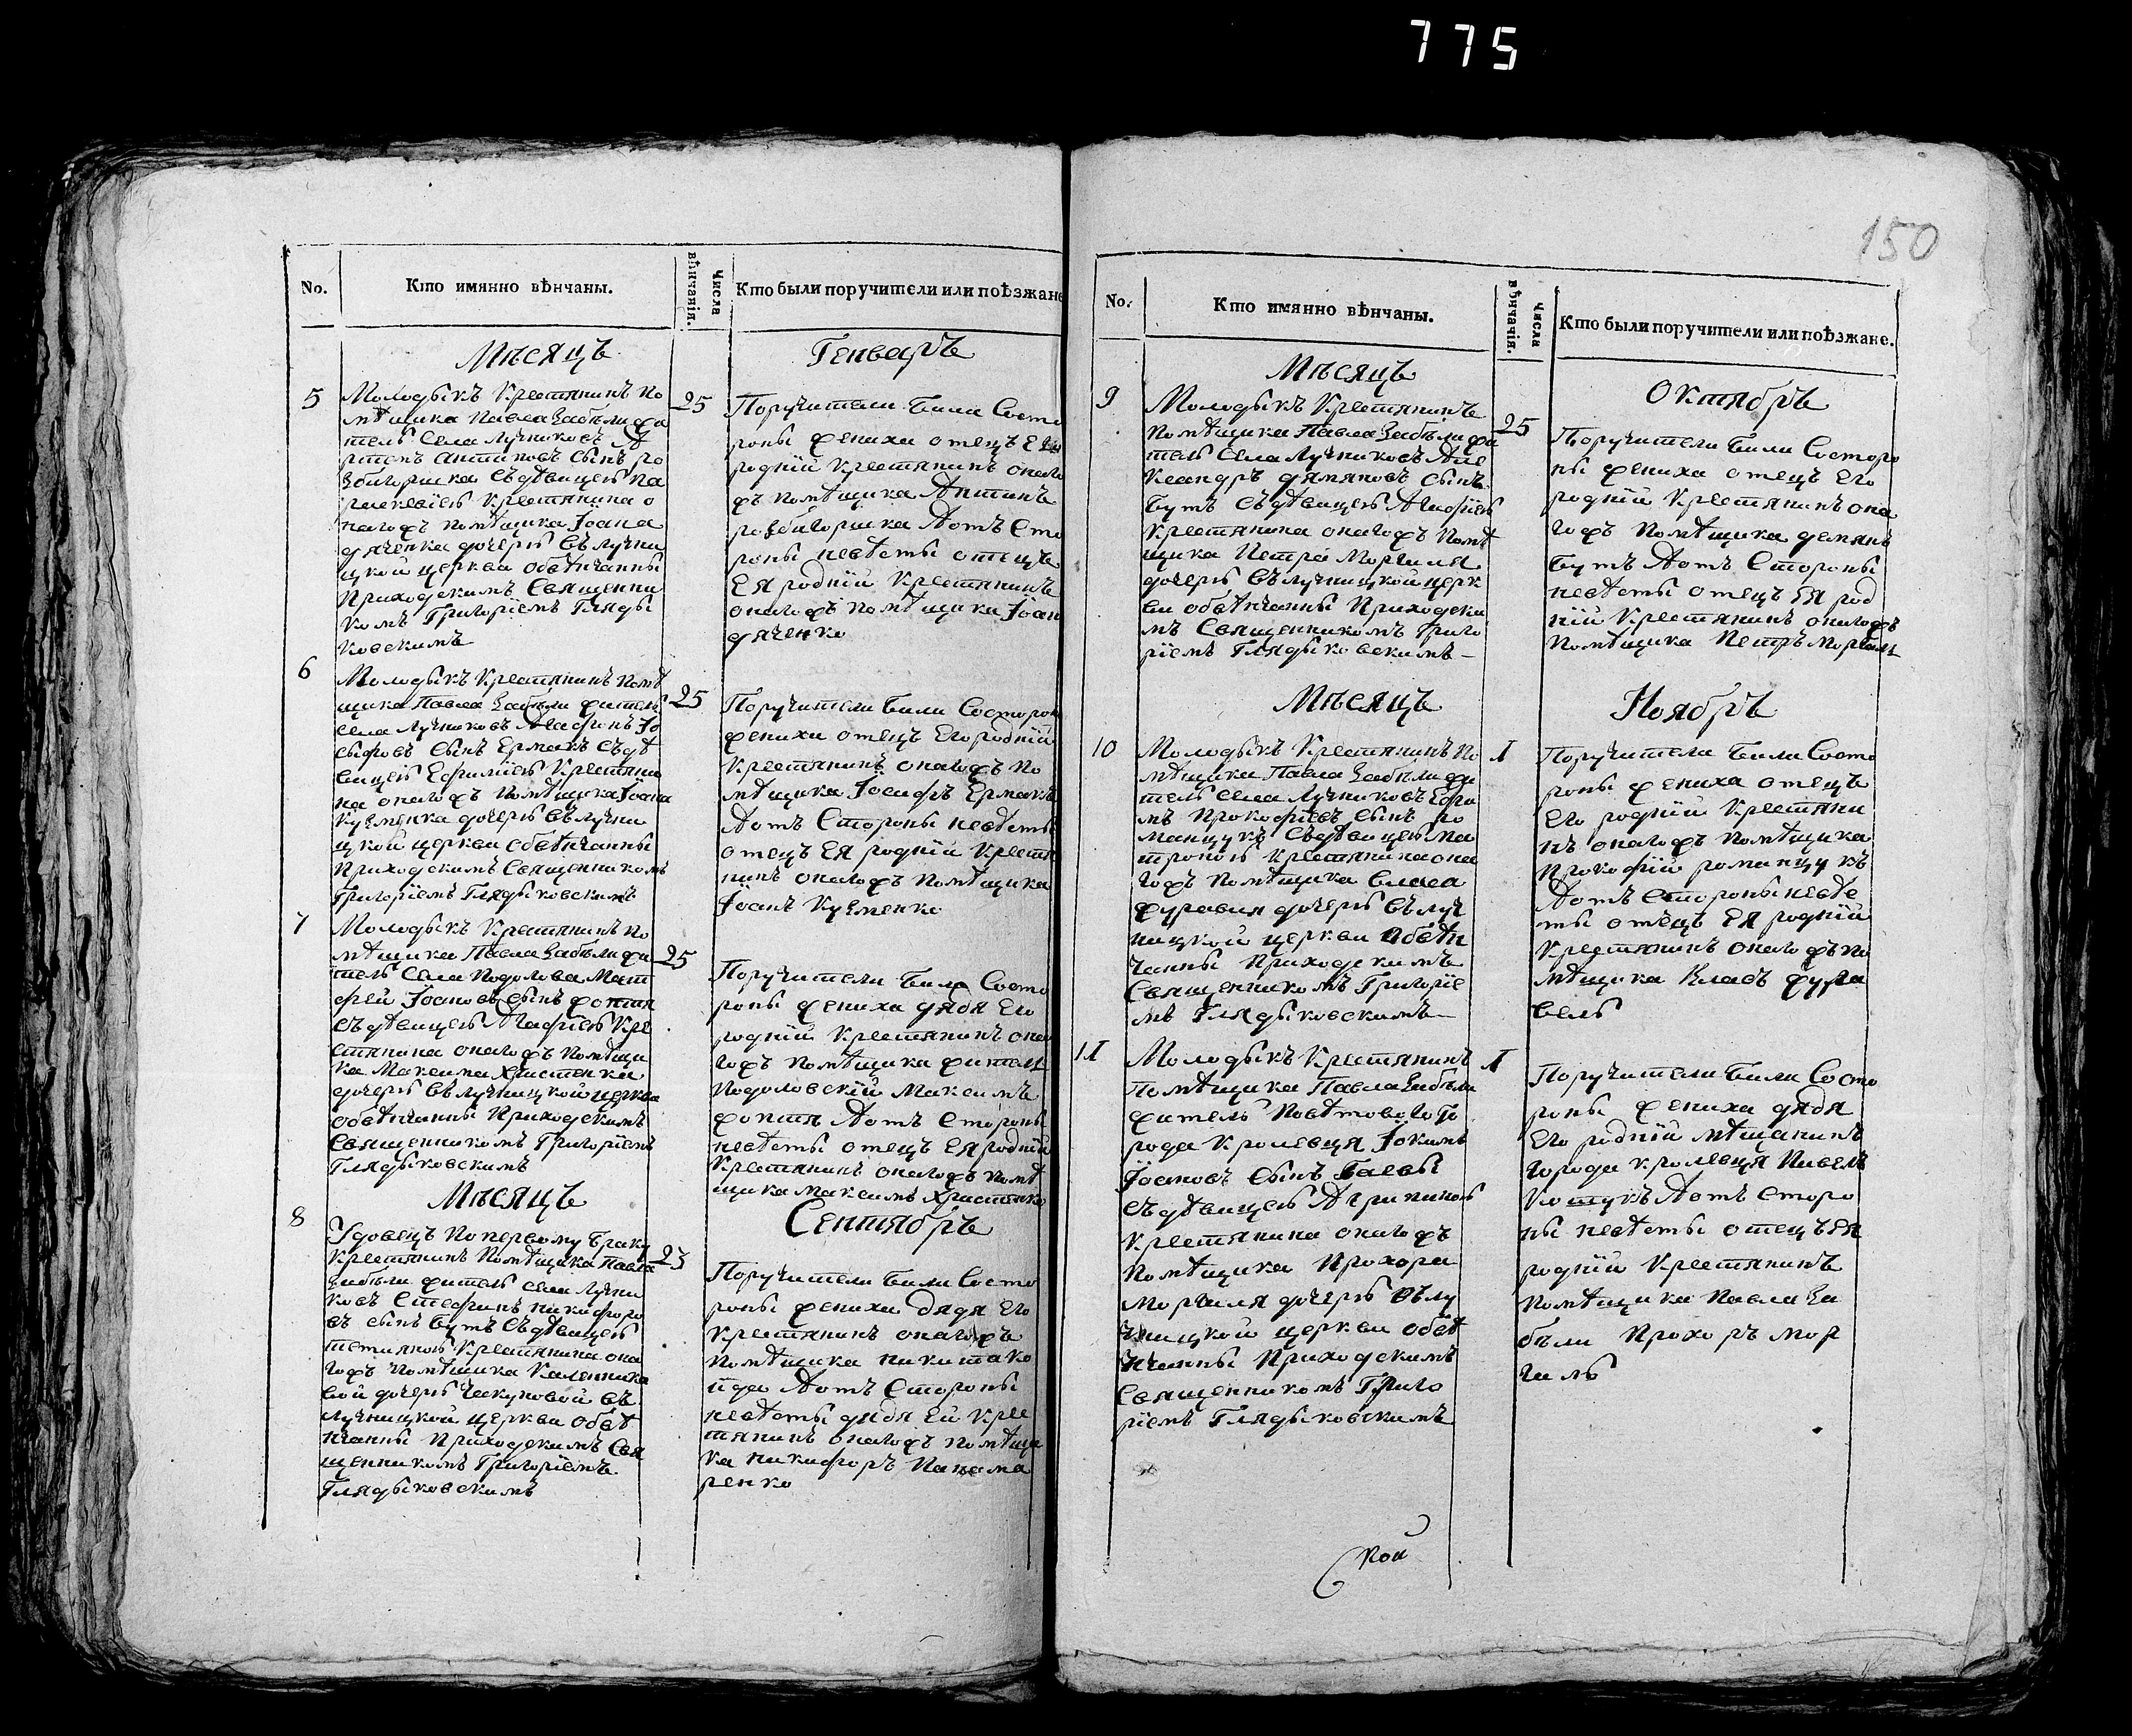 775
150
No.
Кто имянно вѣнчаны.
Числа вѣнчанія.
Кто были поручители или поѣзжане
Мѣсяцъ
Генваръ
5
Молодыкъ Крестянинъ по
мѣщика Павла Забѣли жи
тель Села Лучниковъ А
ртемъ Антиповъ сынъ ро
збигоршка Съдѣвицею Па
раскевіею Крестянина о
нагожъ помѣщика Іоана
дяченка дочерю въ лучни
цкой церкви обвѣнчанны
Приходскимъ Священни
комъ Григоріемъ Гляды
ковскимъ
25
Поручители били Состо
роны жениха отецъ Его
родній крестянинъ онаго
жъ помѣщика Антипъ
розбигоршка Аотъ Сто
роны невѣсты отецъ
Ея родній Крестянинъ
онагожъ помѣщика Іоан
дяченко
6
Молодыкъ Крестянинъ помѣ
щика Павла Забѣли житель
села Лучниковъ Іо
сифовъ Сынъ Ермакъ Съдѣ
вицею Ефиміею Крестяни
на онагожъ помѣщика Іоана
кузменка дочерю въ лучни
цкой церкви обвѣнчанны
Приходскимъ Священникомъ
Григоріемъ Глядыковскимъ
25
Поручители били Состорон
жениха отецъ Его родній
крестянинъ онагожъ по
мѣщика Іосифъ Ермакъ
Аотъ Стороны невѣсты
отецъ Ея родній Крестя
нинъ онагожъ помѣщика
Іоанъ Кузменко
7
Молодыкъ Крестянинъ по
мѣщика Павла Забѣли жи
тель Села Подолова Мат
фей Іоановъ Сынъ
Съдѣвицею Агафіею Кре
стянина онагожъ помѣщи
ка Максима Христенка
дочерю въ лучницкой церкви
обвѣнчанны Приходскимъ
Священникомъ Григоріемъ
Глядыковскимъ
25
Поручители били Состо
роны жениха дядя Его
родній Крестянинъ она
гожъ помѣщика житель
подоловскій Максимъ
Аотъ Стороны
невѣсты отецъ Ея родній
Крестянинъ онагожъ помѣ
щика Максимъ Христенко
Мѣсяцъ
Сентябръ
8
Удовецъ по первому браку
Крестянинъ помѣщика Павла
Забѣли житель села Лучни
ковъ Стефанъ Никифоро
въ сынъ бутъ Съдѣвицею
тетяною Крестянина она
гожъ помѣщика
вой дочерю въ
Лучницкой церкви обвѣ
нчанны Приходскимъ Свя
щенникомъ Григоріемъ
Глядыковскимъ
23
Поручители били Состо
роны жениха дядя Его
крестянинъ онагожъ
помѣщика никита ко
Аотъ Стороны
невѣсты дядя Ей Крес
тянинъ онагожъ помѣщи
ка никифоръ Панама
ренко
No.
Кто имянно вѣнчаны.
Числа вѣнчанія.
Кто были поручители или поѣзжане.
Мѣсяцъ
Октябръ
9
Молодыкъ Крестянинъ
помѣщика Павла Забѣли жи
тель Села Лучниковъ Але
ксандръ дямяновъ Сынъ
бутъ Съдѣвицею Агафіею
крестянина онагожъ помѣ
щика Петра Моргиля
дочерю въ лучницкой церк
ви обвѣнчанны Приходски
мъ Священникомъ Григо
ріемъ Глядыковскимъ
25
Поручители били Состоро
ны жениха отецъ Его
родній Крестянинъ она
гожъ помѣщика демянъ
бутъ Аотъ Стороны
невѣсты отецъ Ея род
ній Крестянинъ онагожъ
помѣщика Петръ Моргиль
Мѣсяцъ
Ноябръ
10
Молодыкъ Крестянинъ по
мѣщика Павла Забѣли жи
тель села Лучниковъ Ефи
мъ Прокофіевъ Сынъ ро
манцукъ Съдѣвицею ма
троною крестянина она
гожъ помѣщика Власа
журавля дочерю въ луч
ницкой церкви обвѣн
чанны Приходскимъ
Священникомъ Григоріе
мъ Глядыковскимъ
1
Поручители били Состо
роны жениха отецъ
Его родній Крестяни
нъ онагожъ помѣщика
Прокофій романцукъ
Аотъ Стороны невѣс
ты отецъ Ея родній
Крестянинъ онагожъ по
мѣщика Власъ жура
вель
11
Молодыкъ Крестянинъ
помѣщика Павла Забѣли
житель повѣтового Го
рода кролевця Іокимъ
Іоановъ Сынъ
Съдѣвицею Агрипиною
крестянина онагожъ
помѣщика Прохора
моргиля дочерю въ лу
чницкой церкви обвѣ
нчанны Приходскимъ
Священникомъ Григо
ріемъ Глядыковскимъ
1
Поручители били Состо
роны жениха дядя
Его родній мѣщанинъ
города кролевця Павелъ
Аотъ Сторо
ны невѣсты отецъ Ея
родній Крестянинъ
помѣщика Павла За
бѣли Прохоръ мор
гиль